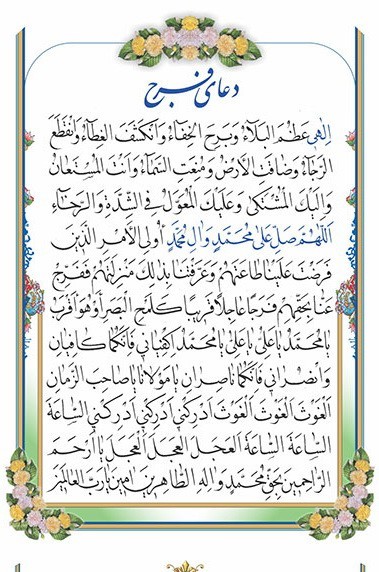 دعای فرج
اِلٰهي عَظُمَ الْبَلَاءُ وَبَرِحَ الْخَفَاءُ وَانْكَشَفَ الْغِطَاءُ وَانْقَطَعَ
الرَّجَاءُ وَضَاقَتِ الْأَرْضُ وَمُنِعَتِ السَّمَاءُ وَأَنْتَ الْمُسْتَعَانُ
وَإِلَيْكَ الْمُشْتَكىٰ وَعَلَيْكَ الْمُعَوَّلُ فِي الشِّدَّةِ وَالرَّخَاءِ
اَللّٰهُمَّ صَلِّ عَلىٰ مُحَمَّدٍ وَآلِ مُحَمَّدٍ أُولِي الْأَمْرِ الَّذِينَ
فَرَضْتَ عَلَيْنَا طَاعَتَهُمْ وَعَرَّفْتَنَا بِذٰلِكَ مَنْزِلَتَهُمْ فَفَرِّجْ
عَنَّا بِحَقِّهِمْ فَرَجًا عَاجِلًا قَرِيبًا كَلَمْحِ الْبَصَرِ أَوْ هُوَ أَقْرَبُ
يَا مُحَمَّدُ يَا عَلِيُّ يَا عَلِيُّ يَا مُحَمَّدُ اكْفِيَانِي فَإِنَّكُمَا كَافِيَانِ
وَانْصُرَانِي فَإِنَّكُمَا نَاصِرَانِ يَا مَوْلَانَا يَا صَاحِبَ الزَّمَانِ
الْغَوْثَ الْغَوْثَ الْغَوْثَ أَدْرِكْنِي أَدْرِكْنِي أَدْرِكْنِي السَّاعَةَ
السَّاعَةَ السَّاعَةَ الْعَجَلَ الْعَجَلَ الْعَجَلَ يَا أَرْحَمَ
الرَّاحِمِينَ بِحَقِّ مُحَمَّدٍ وَآلِهِ الطَّاهِرِينَ آمِينَ يَا رَبَّ الْعَالَمِينَ